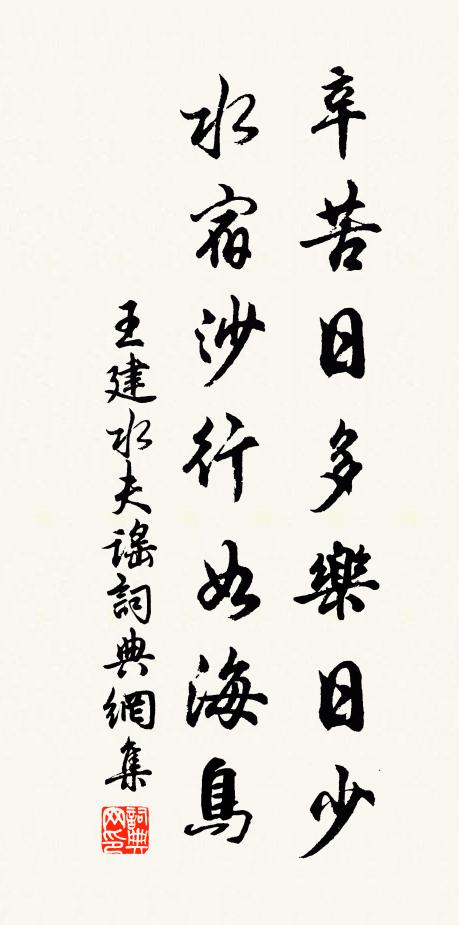 辛苦日多樂日少
水宿沙行如海鳥
王建水夫謠詞典網集
詞典网印